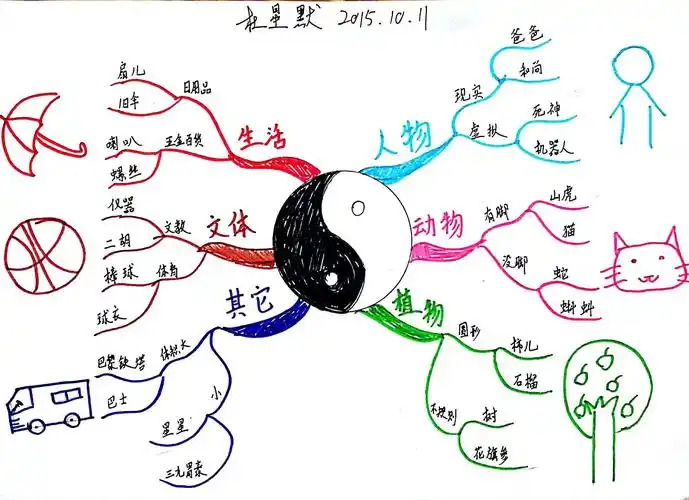 杜星默 2015.10.11
生活
日用品
扇儿
旧伞
五金百货
喇叭
螺丝
文体
文教
仪器
二胡
体育
棒球
球衣
其它
体积大
巴黎铁塔
巴士
小
星星
三九胃泰
人物
现实
爸爸
和尚
虚拟
死神
机器人
动物
有脚
山虎
猫
没脚
蛇
蝌蚪
植物
圆形
柿儿
石榴
不规则
树
花旗参